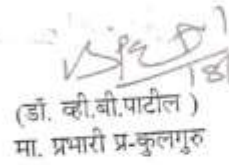 (डॉ. व्ही.बी.पाटील )
मा. प्रभारी प्र-कुलगुरु